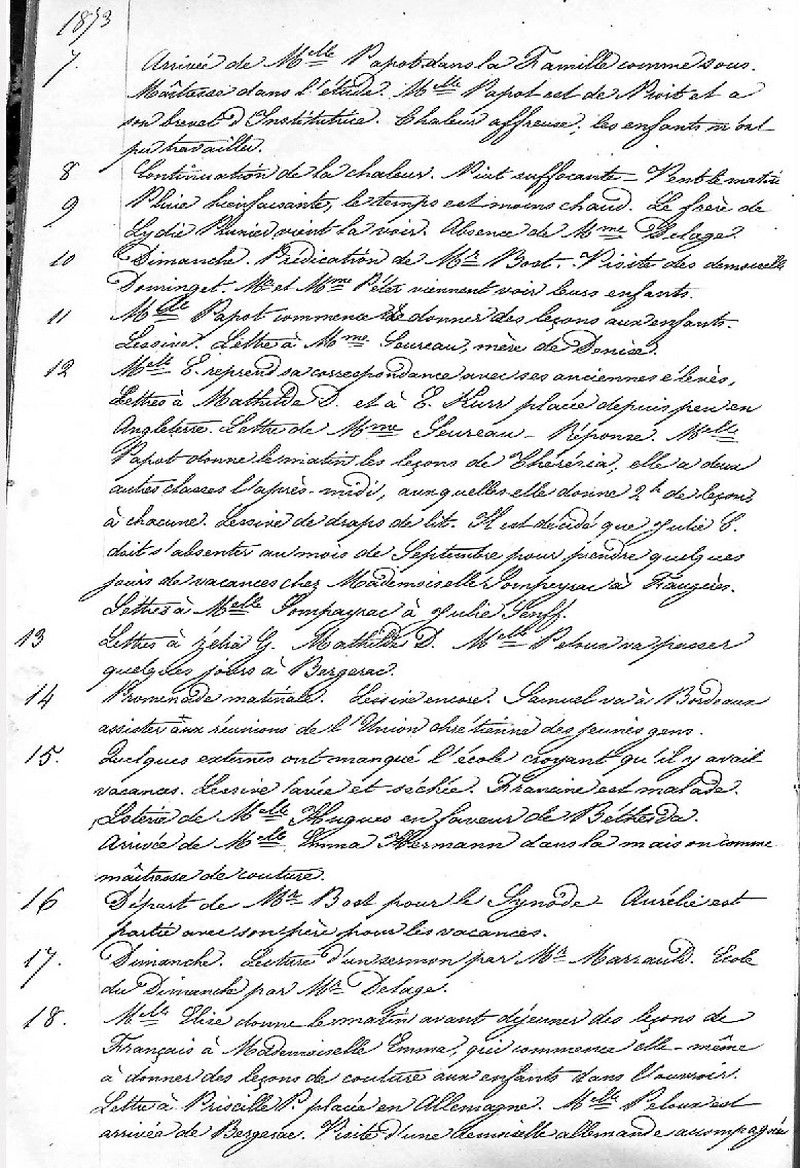 1873
7. Arrivée de Melle Papot dans la Famille comme sous-
Maîtresse dans l'étude. Melle Papot est de Niort et a
son brevet d'Institutrice. Chaleur affreuse, les enfants n'ont
pu travailler.
8 Continuation de la chaleur. Nuit suffocante – Vent le matin
9 Pluie bienfaisante, le temps est moins chaud. Le frère de
Lydie Prunier vient la voir. Absence de Mme Delage.
10 Dimanche. Prédication de Mr Bost. Visite des demoiselles
Dominget. Mr et Mme Péléx viennent voir leurs enfants.
11 Melle Papot commence de donner des leçons aux enfants.
Lessive. Lettre à Mme Soureau, mère de Denise.
12 Melle E. reprend sa correspondance avec ses anciennes élèves,
Lettres à Mathilde D. et à E. Kurr placée depuis peu en
Angleterre. Lettre de Mme Seureau – Réponse. Melle
Papot donne le matin les leçons de Théréria, elle a deux
autres classes l'après-midi, auxquelles elle donne 2h de leçons
à chacune. Lessive de draps de lit. Il est décidé que Julie S.
doit s'absenter au mois de Septembre pour prendre quelques
jours de vacances chez Mademoiselle Sompeyrac à Faugères.
Lettres à Melle Sompayrac à Julie Senff.
13 Lettres à Zélia G. Mathilde D. Melle Peloux va passer
quelques jours à Bergerac.
14 Promenade matinale. Lessive encore. Samuel va à Bordeaux
assister aux réunions de l'Union chrétienne des jeunes gens.
15. Quelques externes ont manqué l'école croyant qu'il y avait
vacances. Lessive lavée et séchée. Francine est malade.
Loterie de Melle Hugues en faveur de Béthesda.
Arrivée de Melle Emma Hermann dans la maison comme
maîtresse de couture.
16 Départ de Mr Bost pour le Synode – Aurélie est
partie avec son père pour les vacances.
17. Dimanche. Lecture d'un sermon par Mr Marraud. Ecole
du Dimanche par Mr Delage.
18. Melle Elise donne le matin avant déjeuner des leçons de
Français à Mademoiselle Emma, qui commence elle-même
à donner des leçons de couture aux enfants dans l'ouvroir.
Lettre à Priscille P. placée en Allemagne. Melle Peloux est
arrivée de Bergerac. Visite d'une demoiselle allemande accompagnée